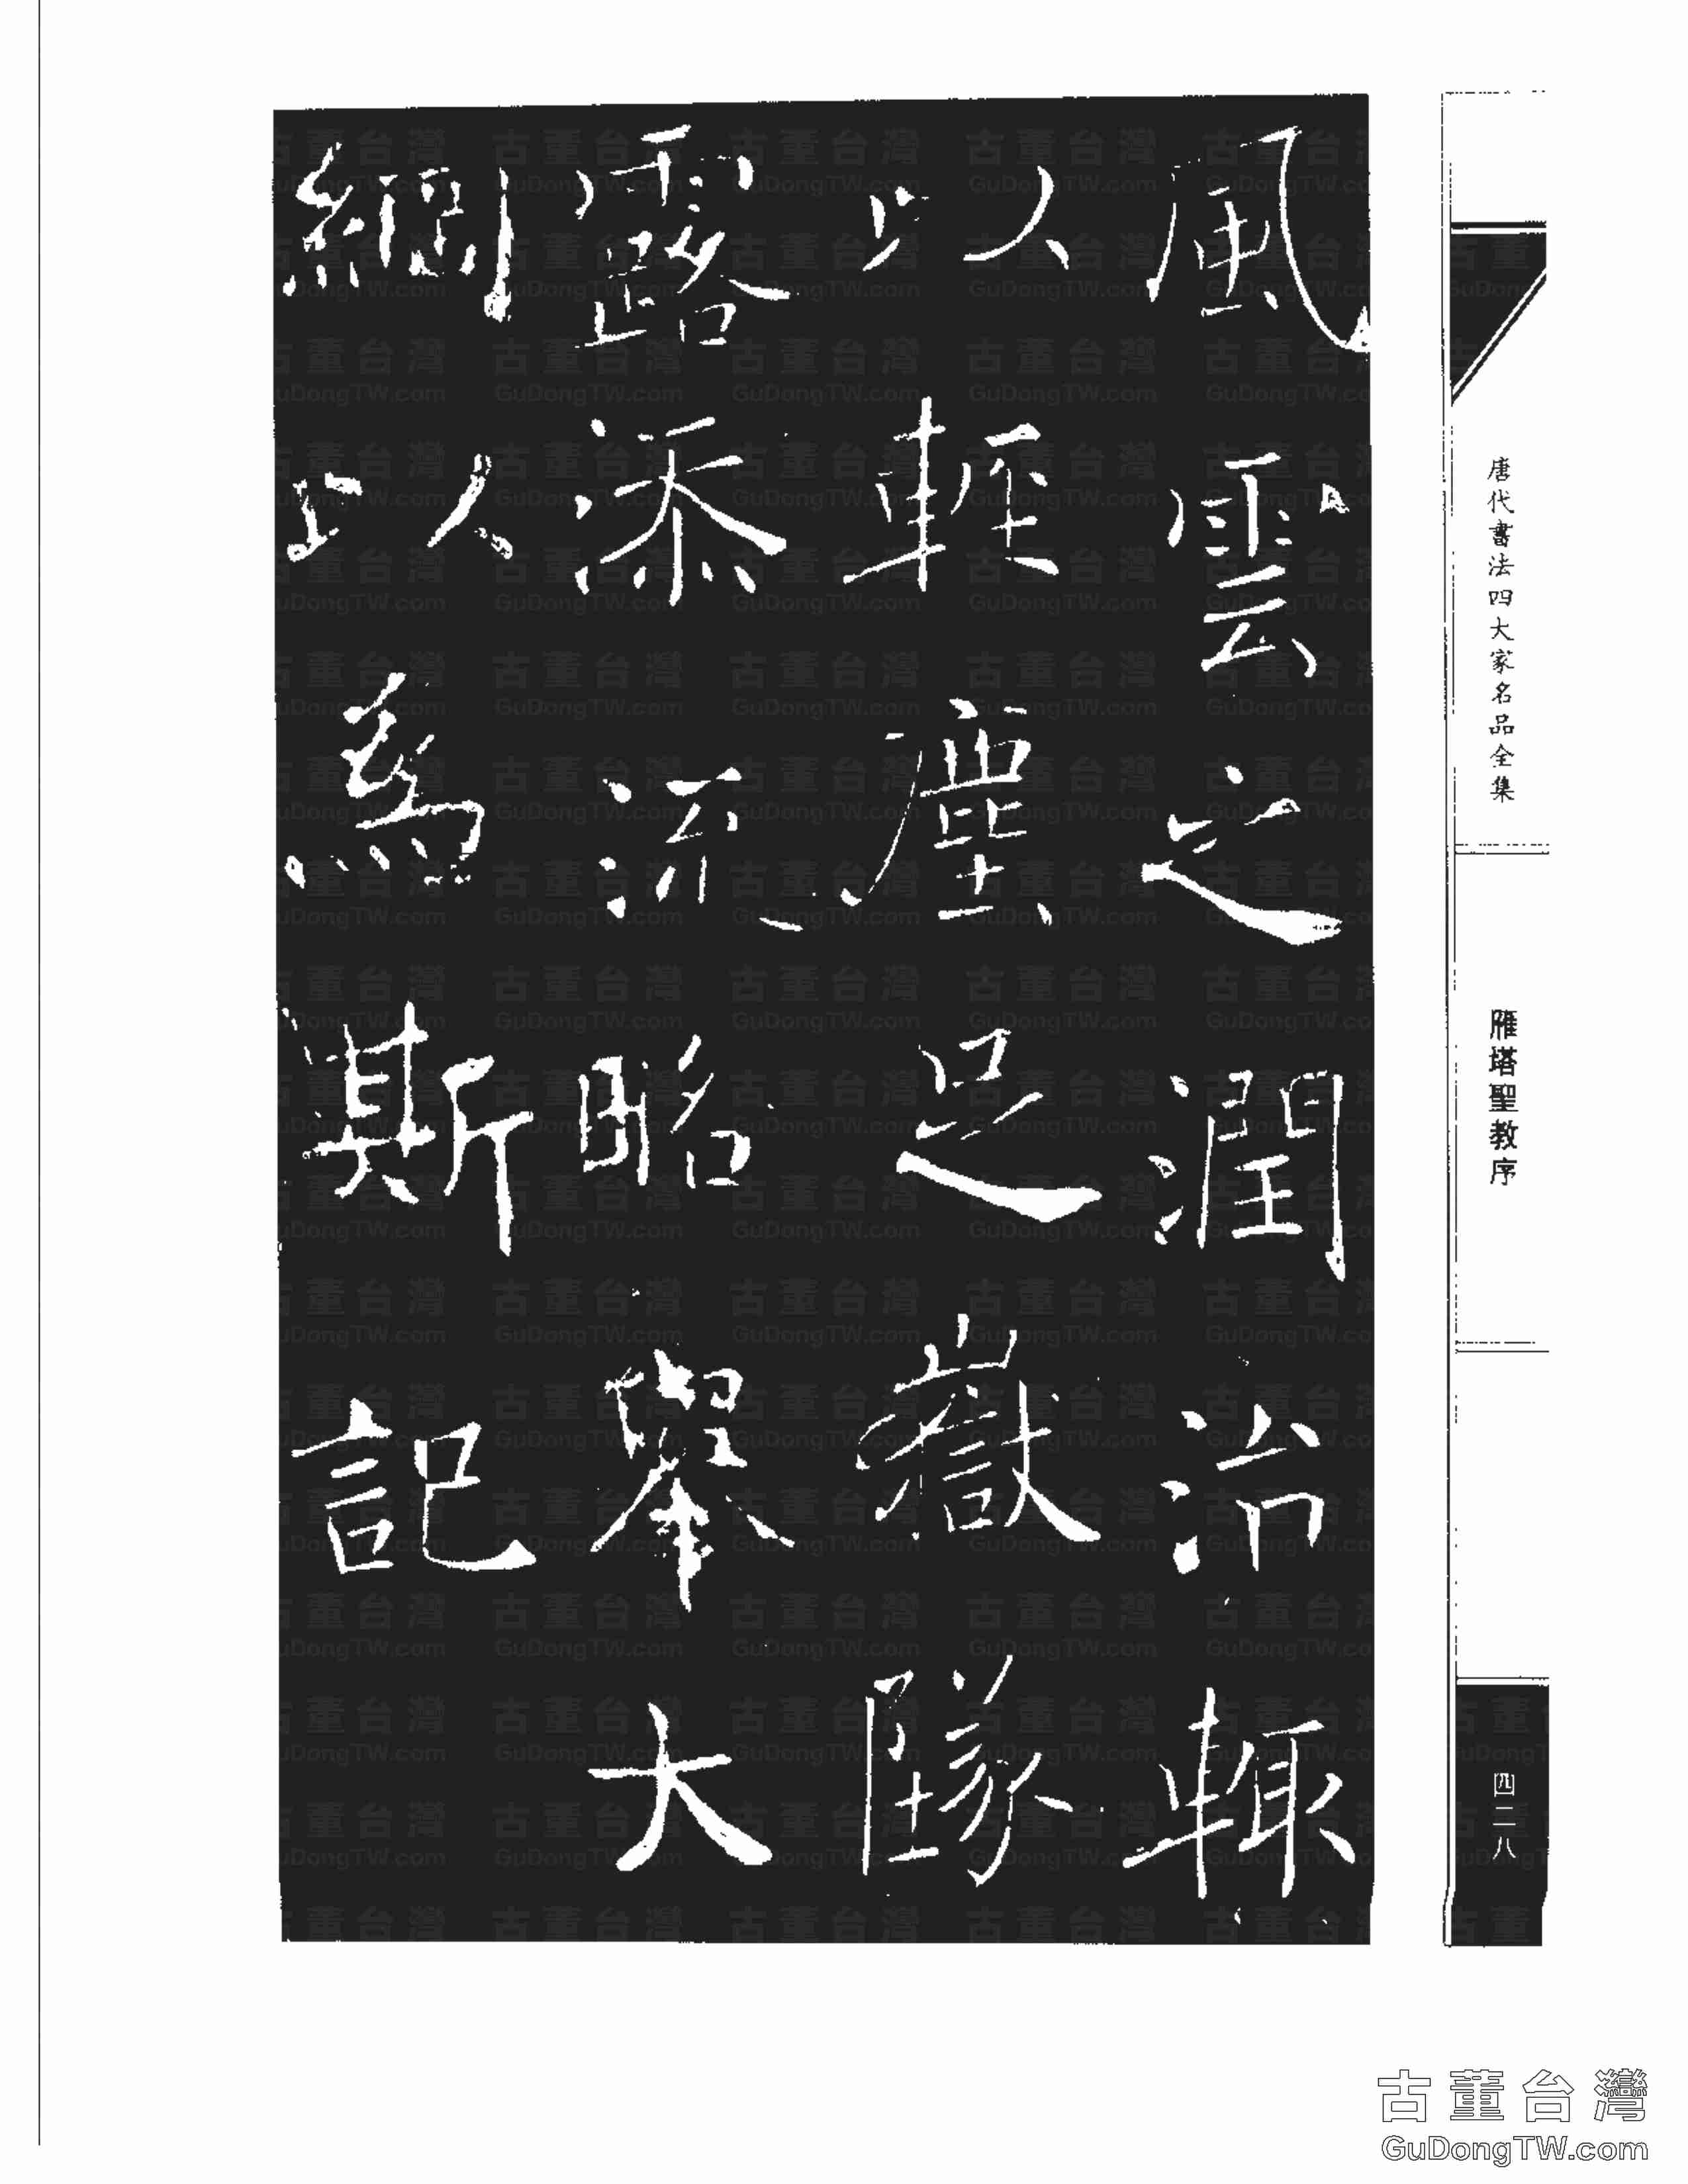 風雲之潤治輒
以輕塵足嶽墜
露添流略舉大
綱以為斯記
唐代書法四大家名品全集
雁塔聖教序
四二八
古董台灣
GuDongTW.com